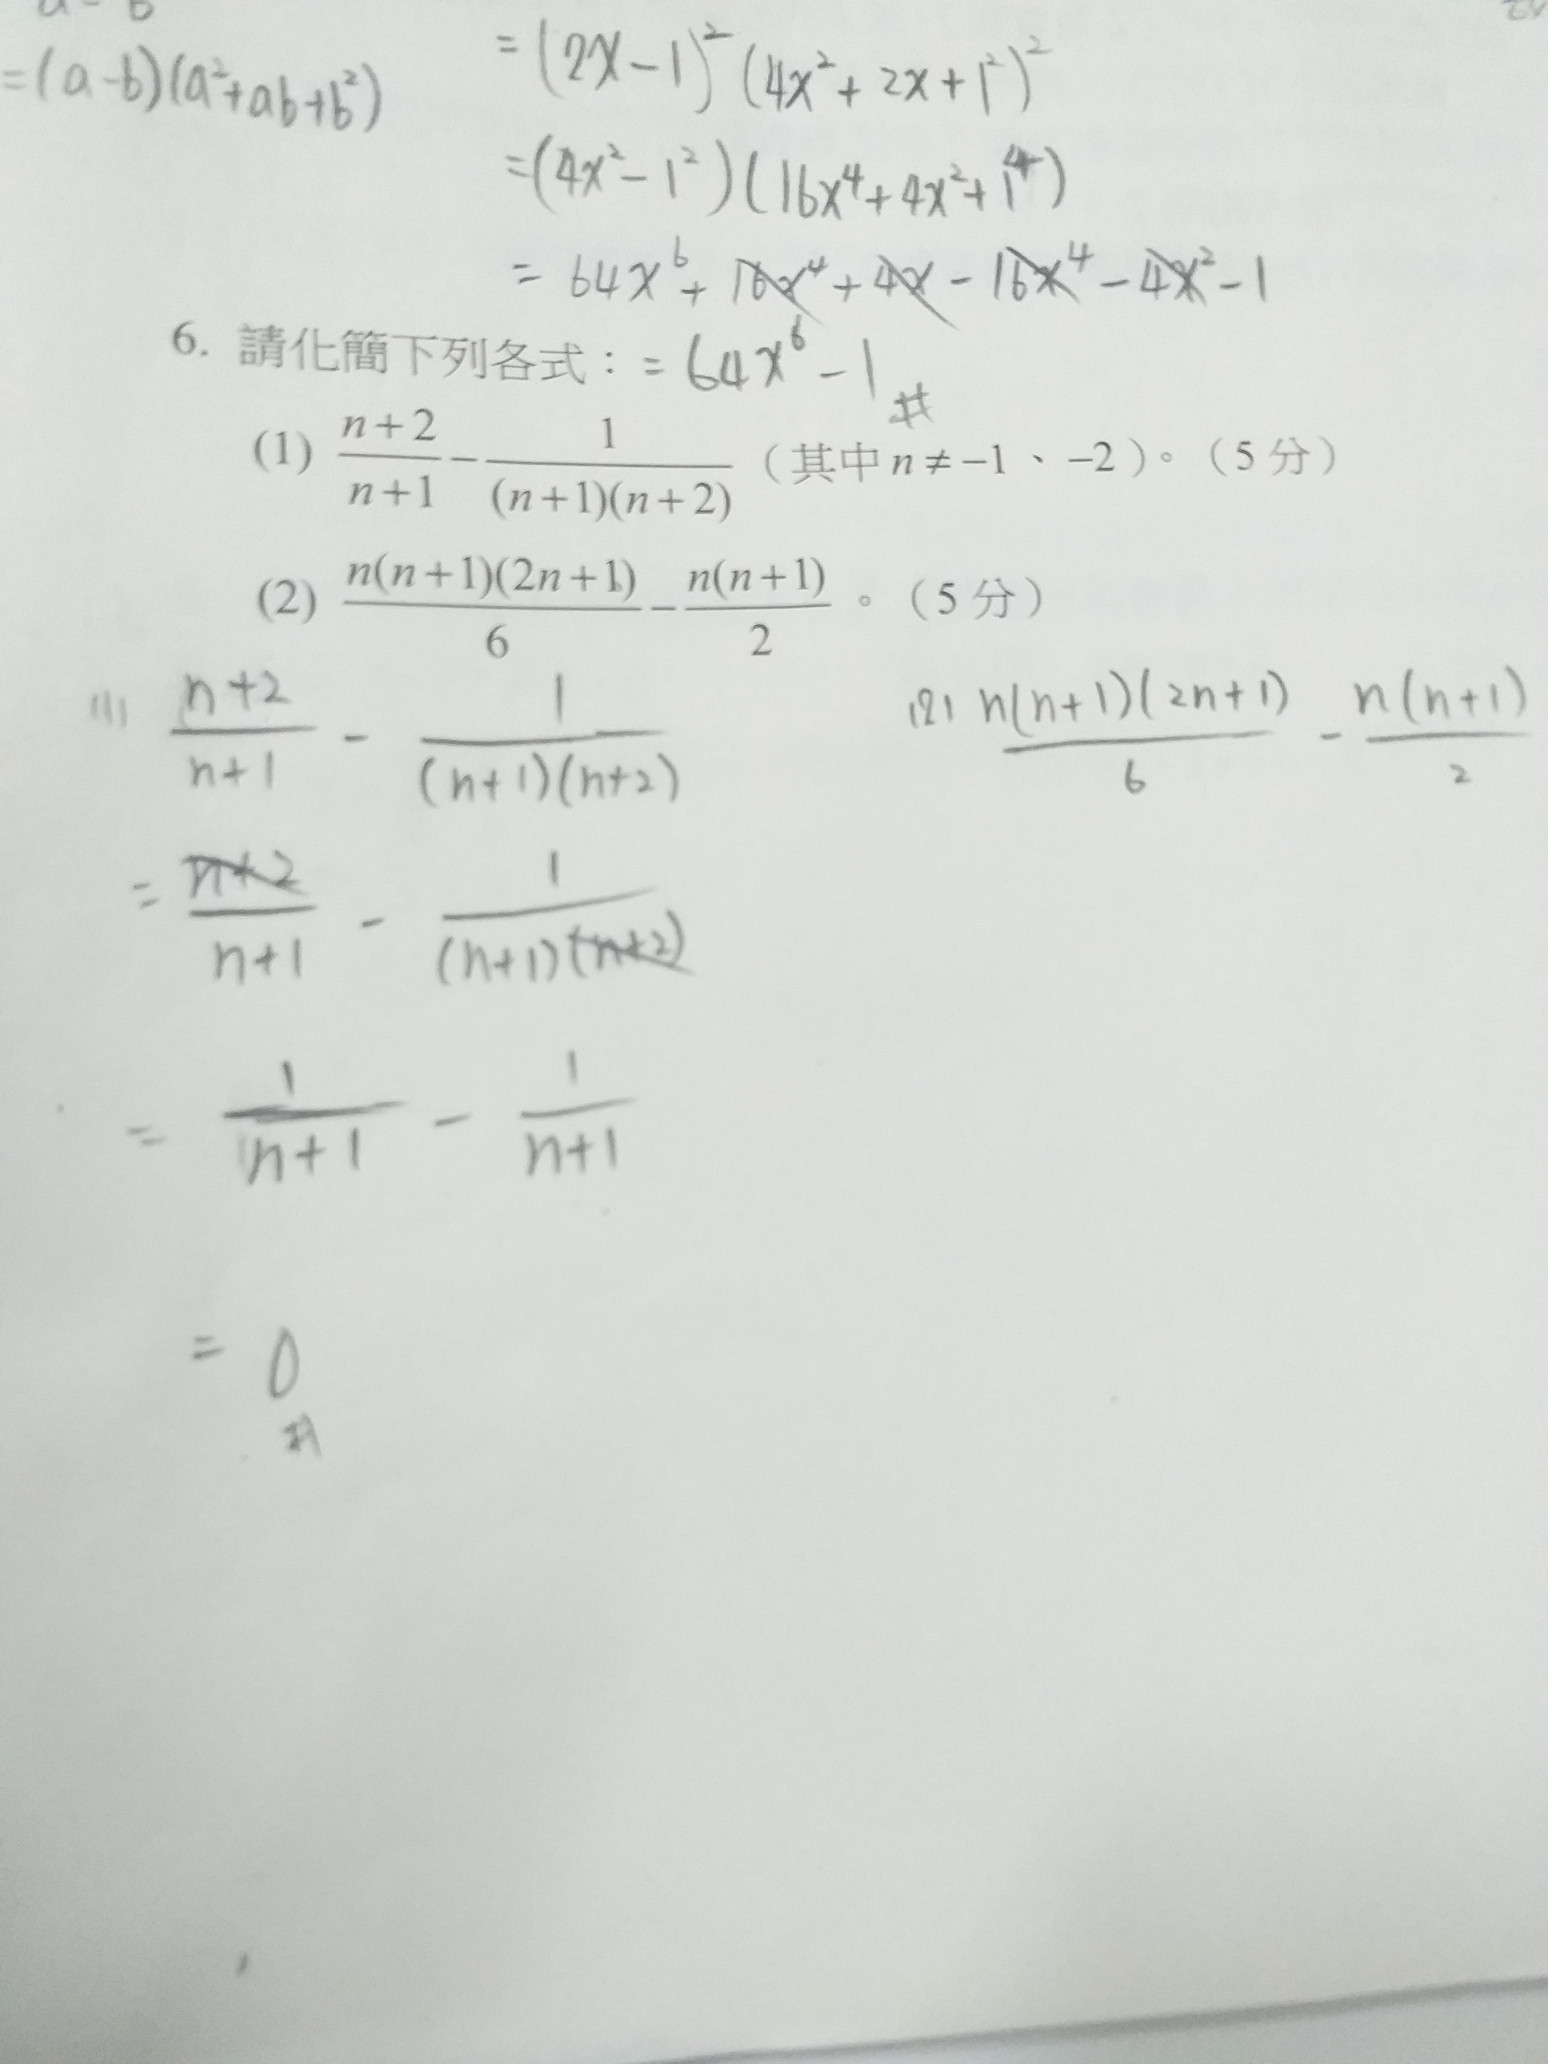 = (2x-1)² (4x²+2x+1²)²
=(a-b)(a²+ab+b²)
=(4x²-1²)(16x⁴+4x²+1⁴)
= 64x⁶+16x⁴+4x-16x⁴-4x²-1
6. 請化簡下列各式： = 64x⁶-1 #
(1) \frac{n+2}{n+1} - \frac{1}{(n+1)(n+2)} （其中 n ≠ -1、-2）。（5 分）
(2) \frac{n(n+1)(2n+1)}{6} - \frac{n(n+1)}{2} 。（5 分）
(1) \frac{n+2}{n+1} - \frac{1}{(n+1)(n+2)}
= \frac{n+2}{n+1} - \frac{1}{(n+1)(n+2)}
= \frac{1}{n+1} - \frac{1}{n+1}
= 0
#
(2) \frac{n(n+1)(2n+1)}{6} - \frac{n(n+1)}{2}